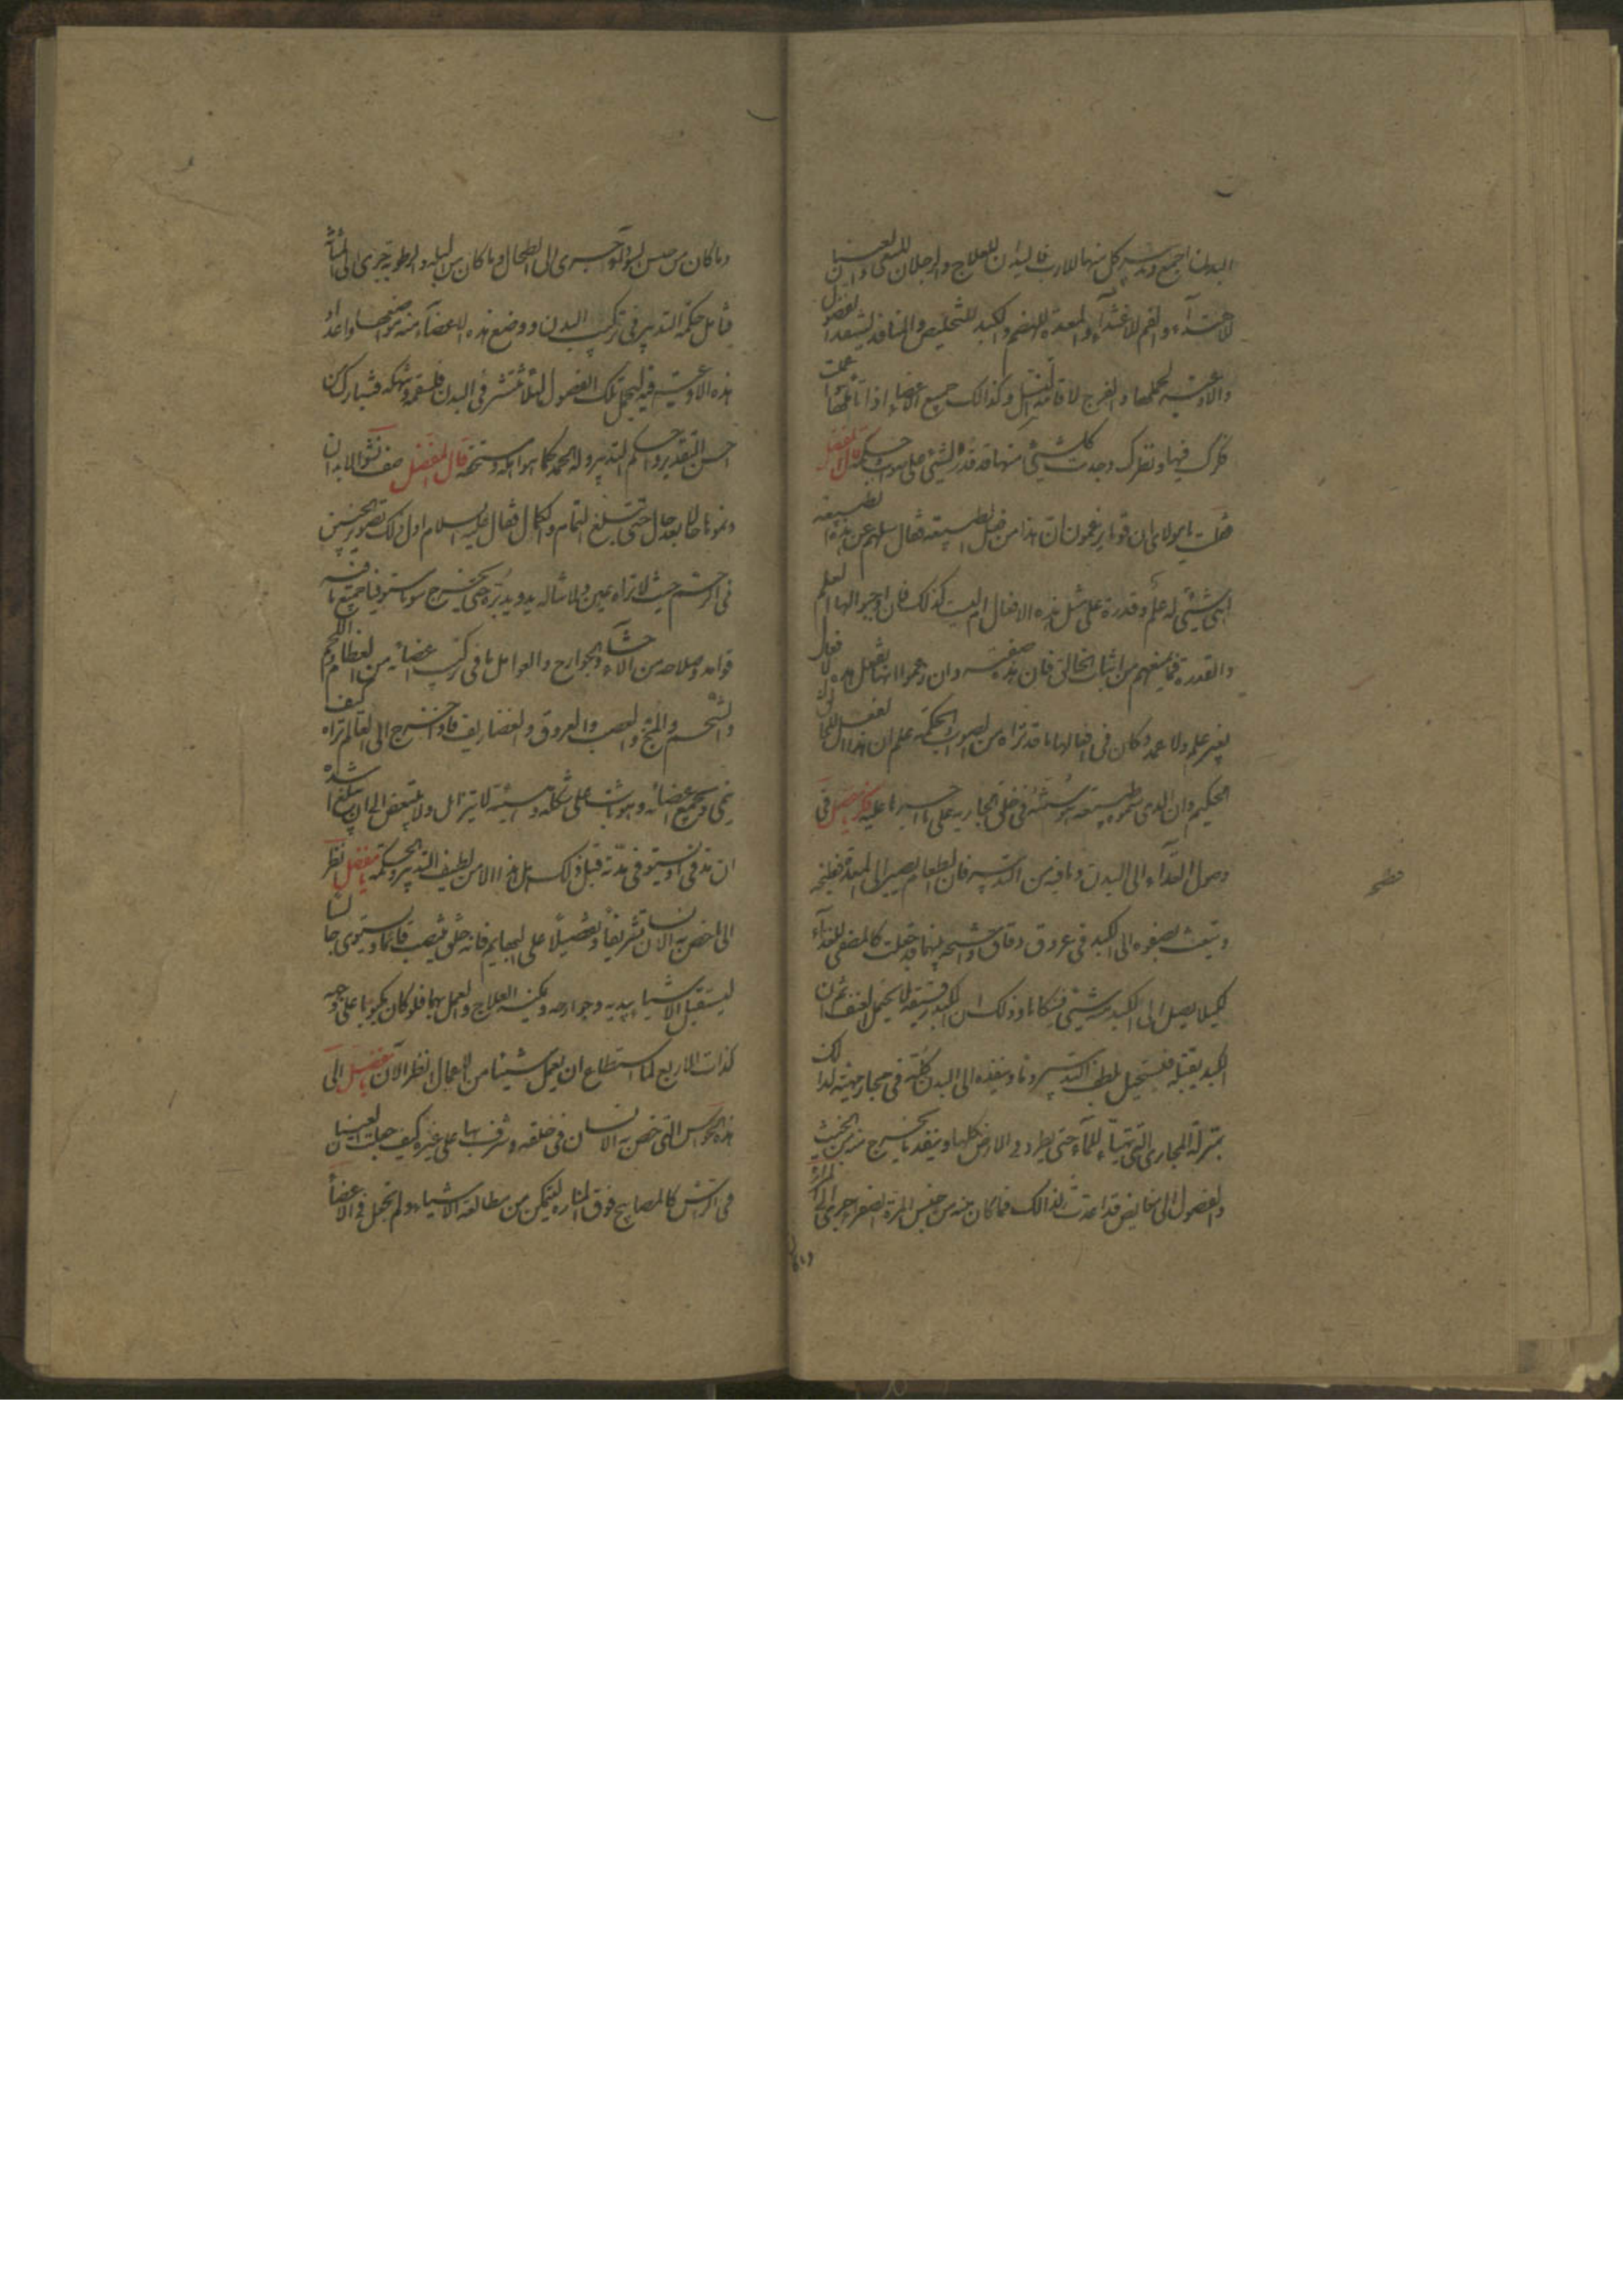 البدن اجمع وتدبير كل منها للارب فاليدان للعلاج والرجلان للسعى والعينان
للاهتداء والفم للاغتذاء والمعدة للهضم والكبد للتخليص والمنافذ لتنفيذ الفضول
والاوعية لحملها والفرج لاقامة النسل وكذالك جميع الاعضاء اذا تاملتها عملت
فكرك فيها ونظرك وجدت كل شيئ منها قد قدر لشيئ على صواب وحكمة قال المفضل
فقلت يا مولاى ان قوما يزعمون ان هذا من فعل الطبيعة فقال سلهم عن هذه الطبيعة
اهى شيئ له علم وقدرة على مثل هذه الافعال ام ليست كذلك فان اوجبوا لها العلم
والقدرة فما يمنعهم من اثبات الخالق فان هذه صنعته وان زعموا انها تفعل هذه الافعال
بغير علم ولا عمد وكان فى افعالها ما قد تراه من الصواب والحكمة علم ان هذا الفعل للخالق
الحكيم وان الذى سموه طبيعة هو سنته فى خلقه الجارية على ما اجراها عليه فكر يا مفضل فى
وصول الغذاء الى البدن وما فيه من التدبير فان الطعام يصير الى المعدة فتطبخه
وتبعث بصفوه الى الكبد فى عروق دقاق واشجة بينهما قد جعلت كالمصفى للغذاء
لكيلا يصل الى الكبد منه شيئ فينكاها وذلك ان الكبد رقيقة لا تحتمل العنف ثم ان
الكبد تقبله فيستحيل بلطف التدبير دما وينفذه الى البدن كله فى مجارى مهيئة لذلك
بمنزلة المجارى التى تهيأ للماء حتى يطرد فى الارض كلها وينفذ ما يخرج منه من الخبث
والفضول الى مفايض قد اعدت لذالك فما كان منه من جنس المرة الصفراء جرى الى المرارة
وما كان
وما كان من جنس السوداء جرى الى الطحال وما كان من البلة والرطوبة جرى الى المثانة
فتامل حكمة التدبير فى تركيب البدن ووضع هذه الاعضاء منه مواضعها واعداد
هذه الاوعية فيه لتحمل تلك الفضول لئلا تنتشر فى البدن فتسقمه وتنهكه فتبارك من
احسن التقدير واحكم التدبير وله الحمد كما هو اهله ومستحقه قال المفضل صف نشو الابدان
ونموها حالا بعد حال حتى تبلغ التمام والكمال فقال عليه السلام اول ذلك تصوير الجنين
فى الرحم حيث لا تراه عين ولا تناله يد ويدبره حتى يخرج سويا مستوفيا جميع ما فيه
قوامه وصلاحه من الاحشاء والجوارح والعوامل الى ما فى تركيب اعضائه من العظام واللحم
والشحم والمخ والعصب والعروق والغضاريف فاذا خرج الى العالم تراه كيف
ينمى بجميع اعضائه وهو ثابت على شكله وهيئته لا تتزايل ولا تنتقص الى ان يبلغ اشده
ان مد فى او يستوفى مدته قبل ذلك هل هذا الا من لطيف التدبير والحكمة يا مفضل انظر
الى ما خص به الانسان تشريفا وتفضيلا على البهايم فانه خلق ينتصب قائما ويستوى جالسا
ليستقبل الاشياء بيديه وجوارحه ويمكنه العلاج والعمل بهما فلو كان مكبوبا على وجهه
كذات الاربع لما استطاع ان يعمل شيئا من الاعمال انظر الان يا مفضل الى
هذه الحواس التى خص بها الانسان فى خلقه وشرف بها على غيره كيف جعلت العينان
فى الراس كالمصابيح فوق المنارة ليتمكن من مطالعة الاشياء ولم تجعل فى الاعضاء